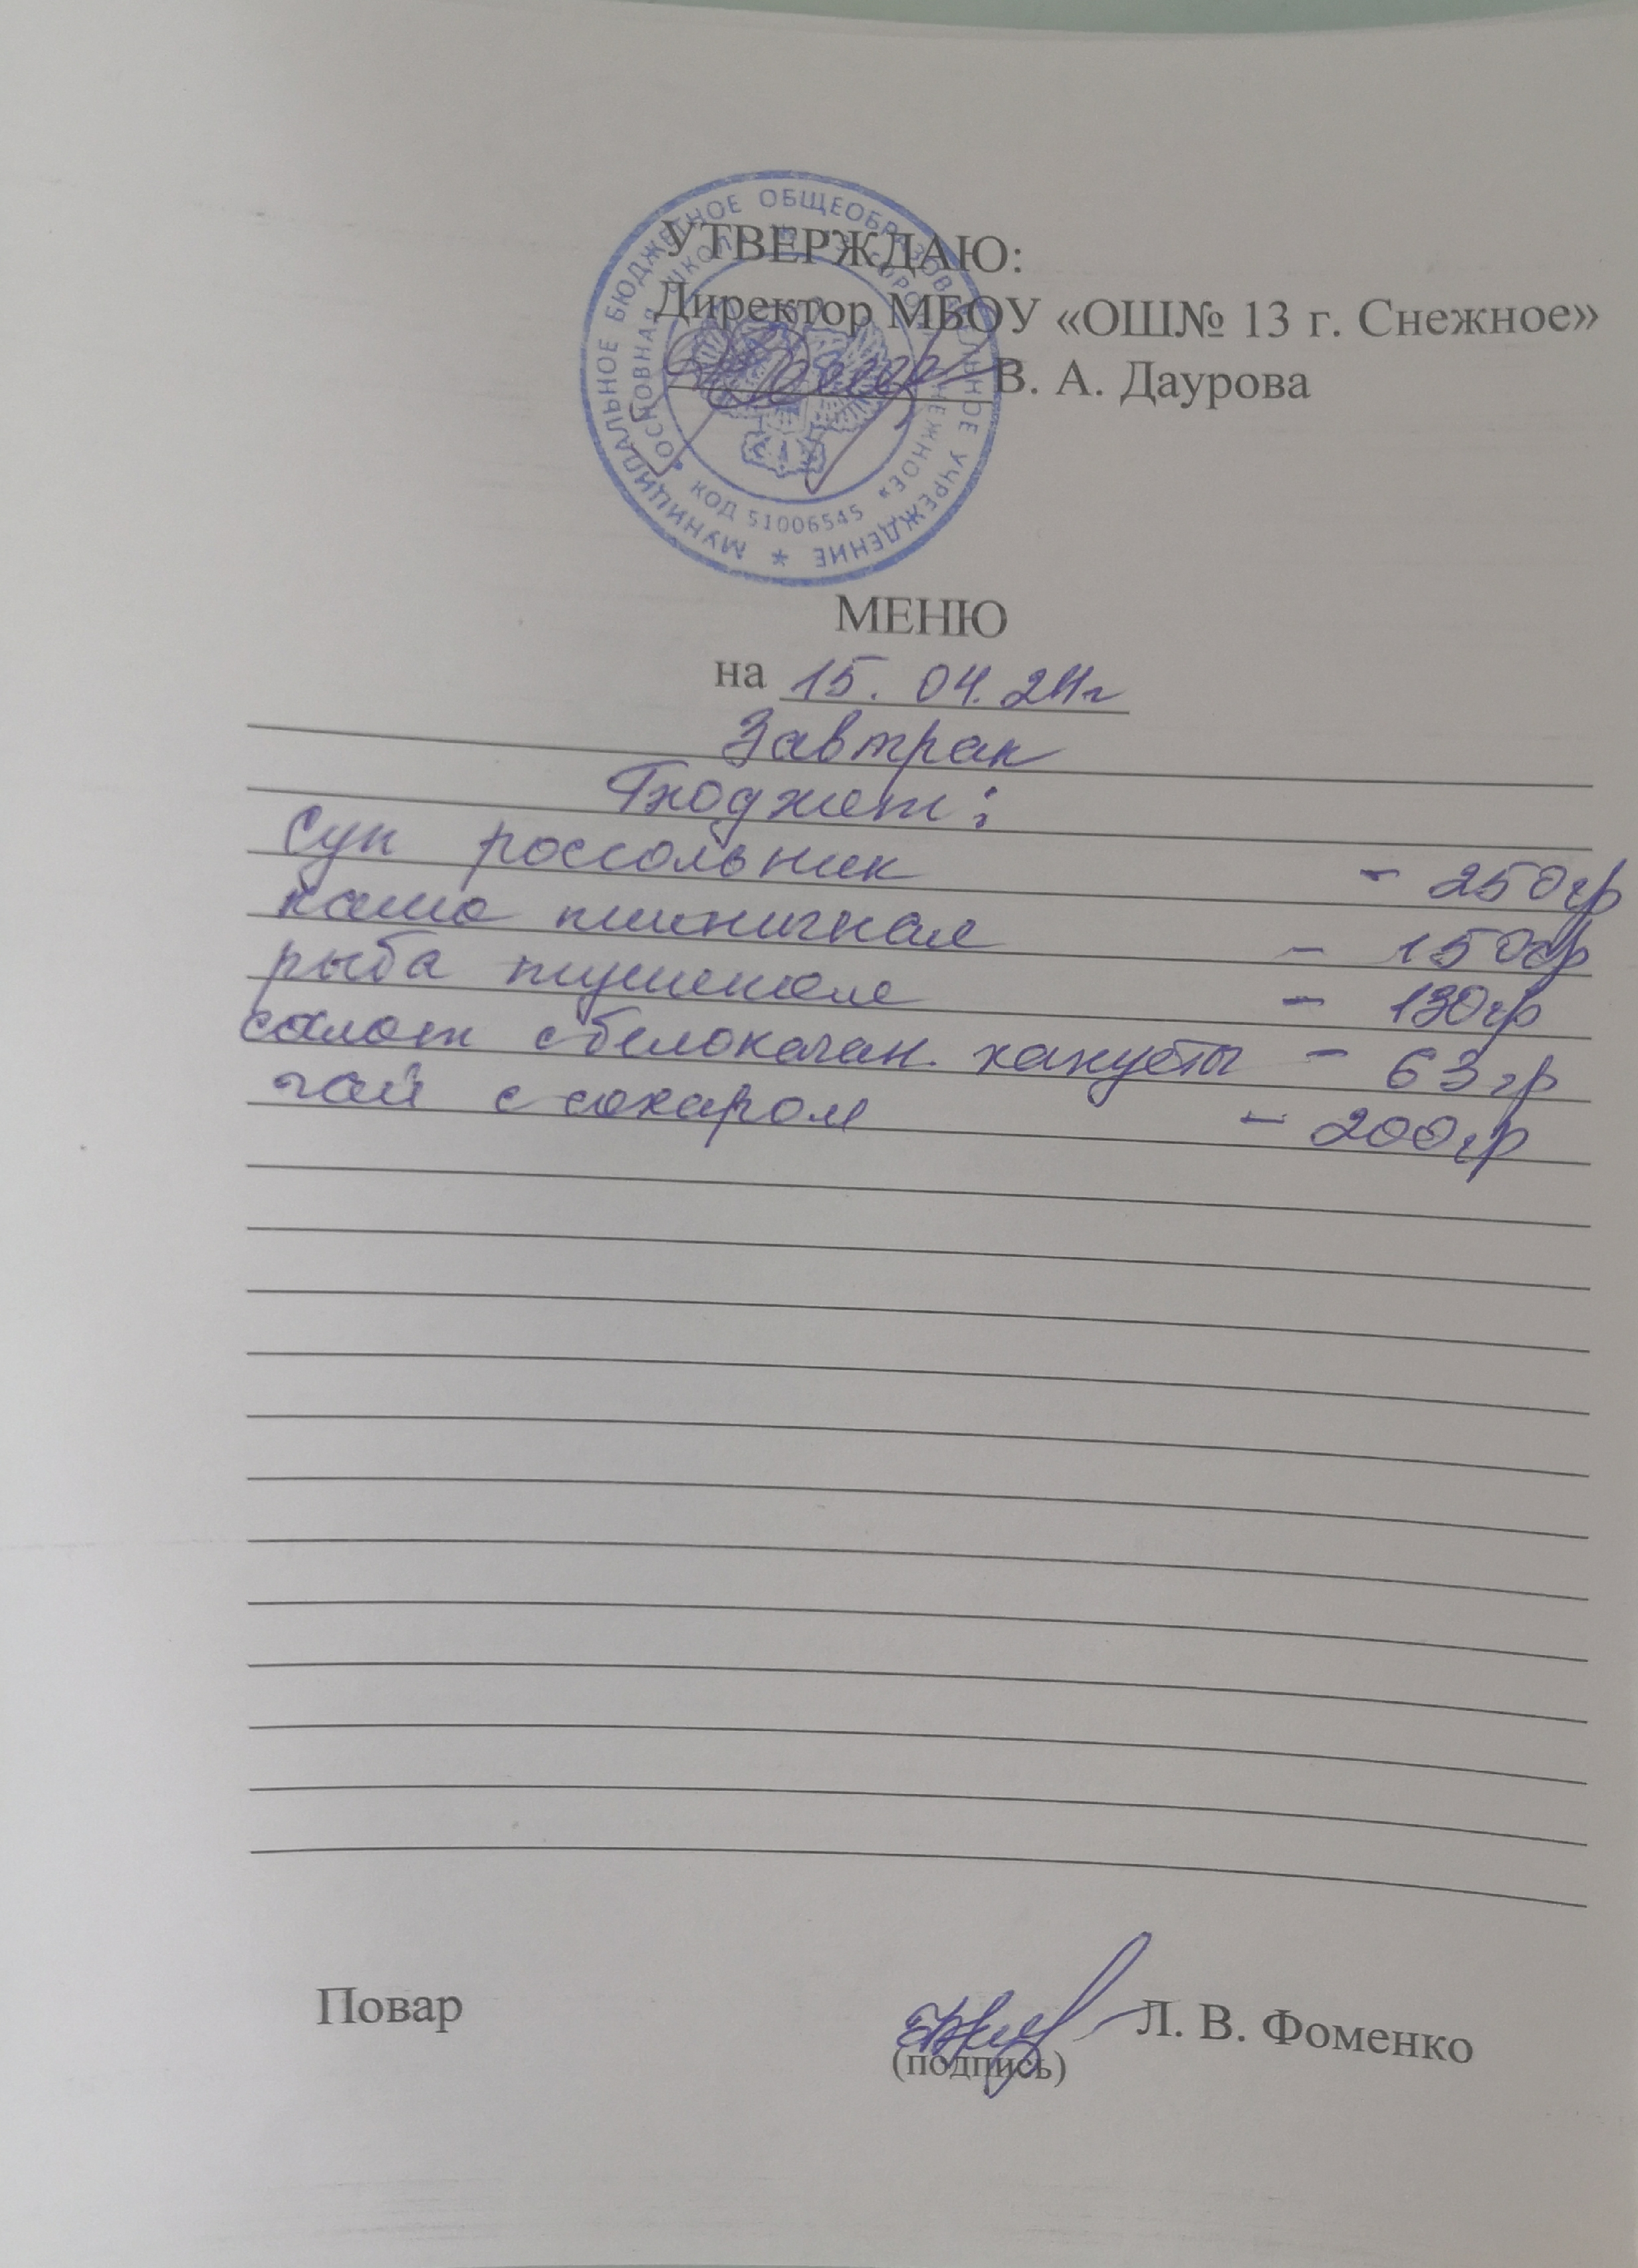 УТВЕРЖДАЮ:
Директор МБОУ «ОШ№ 13 г. Снежное»
В. А. Даурова
МУНИЦИПАЛЬНОЕ БЮДЖЕТНОЕ ОБЩЕОБРАЗОВАТЕЛЬНОЕ УЧРЕЖДЕНИЕ *
ОСНОВНАЯ ШКОЛА СНЕЖНОЕ»
КОД 51006545
МЕНЮ
на 15. 04. 24г
Завтрак
Бюджет:
Суп россольник - 250гр
каша пшеничная - 150гр
рыба тушеная - 130гр
салат с белокачан. капусты - 63гр
чай с сахаром - 200гр
Повар Л. В. Фоменко
(подпись)